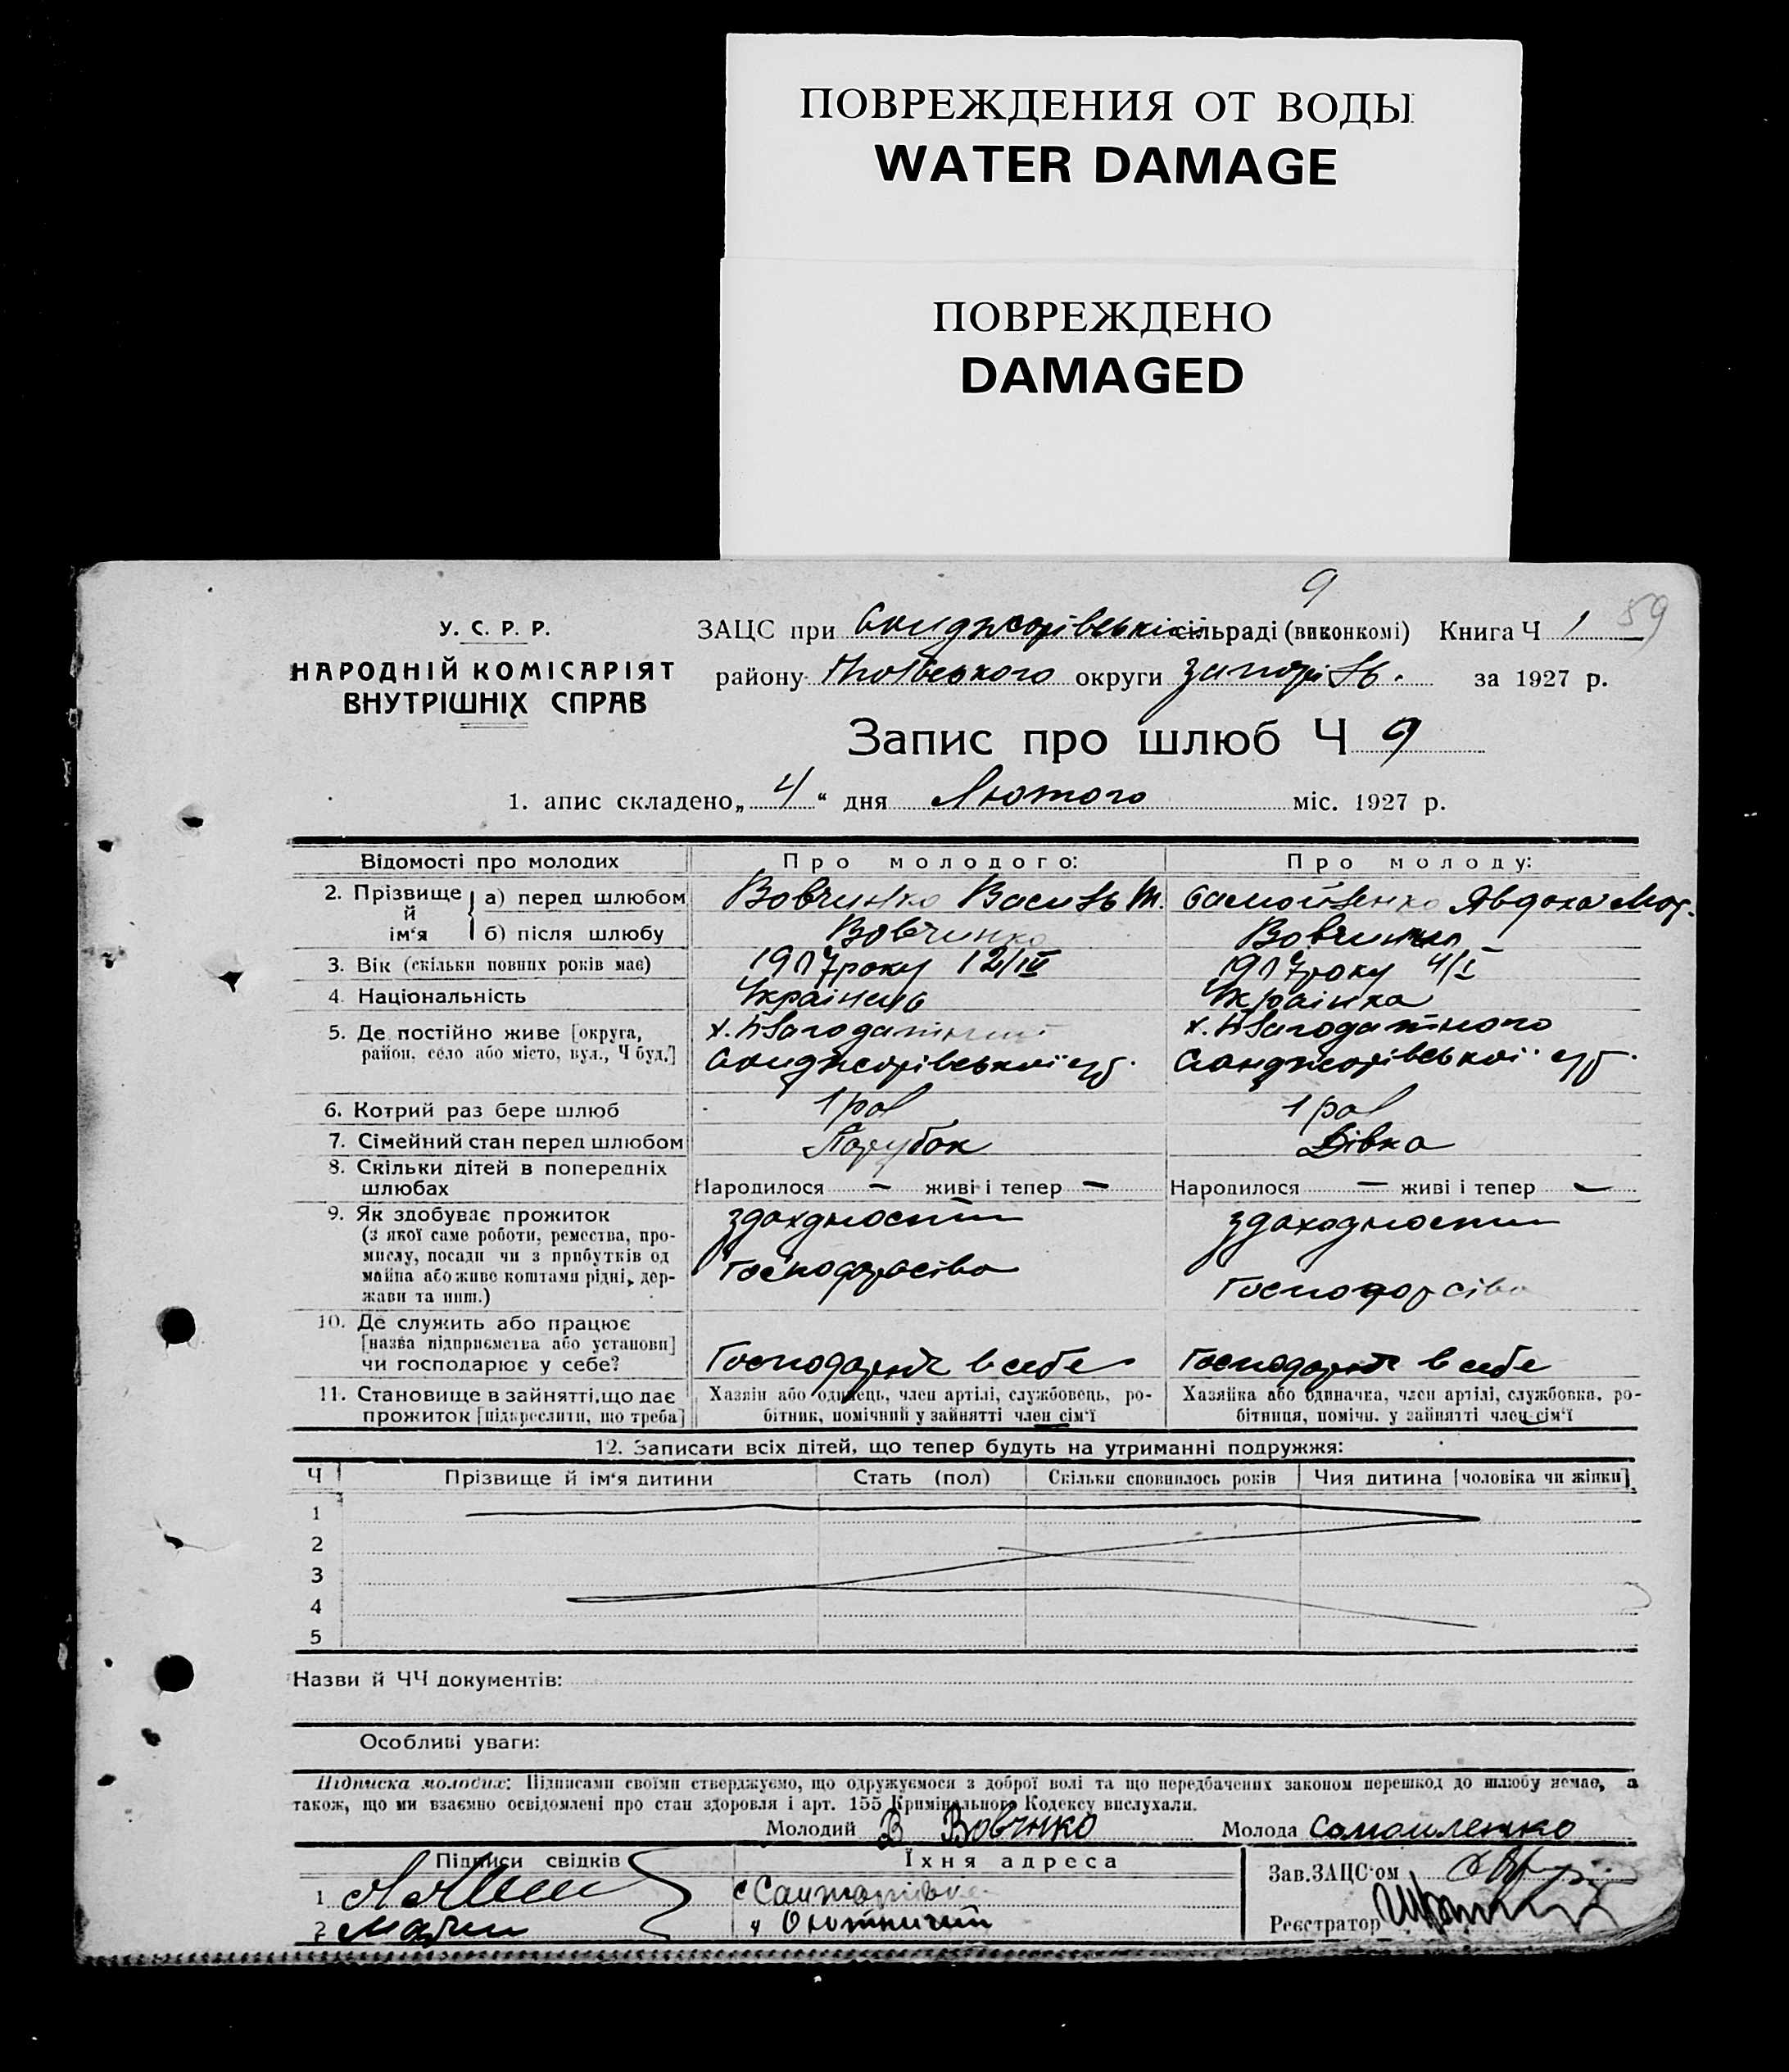 ПОВРЕЖДЕНИЯ ОТ ВОДЫ
WATER DAMAGE
ПОВРЕЖДЕНО
DAMAGED
9
У. С. Р. Р.
НАРОДНІЙ КОМІСАРІЯТ
ВНУТРІШНІХ СПРАВ
ЗАЦС при сільраді (виконкомі) Книга Ч 1 59
району округи за 1927 р.
Запис про шлюб Ч 9
1. апис складено „ 4 “ дня Лютого міс. 1927 р.
Відомості про молодих Про молодого: Про молоду:
2. Прізвище й ім‘я а) перед шлюбом Вовчинко Василь Т. Самойленко Явдоха Мог.
б) після шлюбу Вовчинко Вовчинко
3. Вік (скільки повних років має) 1907 року 12/IV 1907 року 4/I
4. Національність Українець Українка
5. Де постійно живе [округа, х. Благодатний х. Благодатного
район, село або місто, вул., Ч буд.]
6. Котрий раз бере шлюб 1 раз 1 раз
7. Сімейний стан перед шлюбом Парубок Дівка
8. Скільки дітей в попередніх
шлюбах Народилося — живі і тепер — Народилося — живі і тепер —
9. Як здобуває прожиток
(з якої саме роботи, ремества, про-
мислу, посади чи з прибутків од
майна або живе коштами рідні, дер-
жави та инш.)
10. Де служить або працює
[назва підприємства або установи]
чи господарює у себе? в себе в себе
11. Становище в зайнятті, що дає Хазяїн або одинець, член артілі, службовець, ро- Хазяйка або одиначка, член артілі, службовка, ро-
прожиток [підкреслити, що треба] бітник, помічний у зайнятті член сім‘ї бітниця, помічн. у зайнятті член сім‘ї
12. Записати всіх дітей, що тепер будуть на утриманні подружжя:
Ч Прізвище й ім‘я дитини Стать (пол) Скільки сповнилось років Чия дитина [чоловіка чи жінки]
1
2
3
4
5
Назви й ЧЧ документів:
Особливі уваги:
Підписка молодих: Підписами своїми стверджуємо, що одружуємося з доброї волі та що передбачених законом перешкод до шлюбу немає, а
також, що ми взаємно освідомлені про стан здоровля і арт. 155 Кримінального Кодексу вислухали.
Молодий В Вовчнко Молода Самоиленко
Підписи свідків Їхня адреса Зав. ЗАЦС‘ом
1
2 Реєстратор